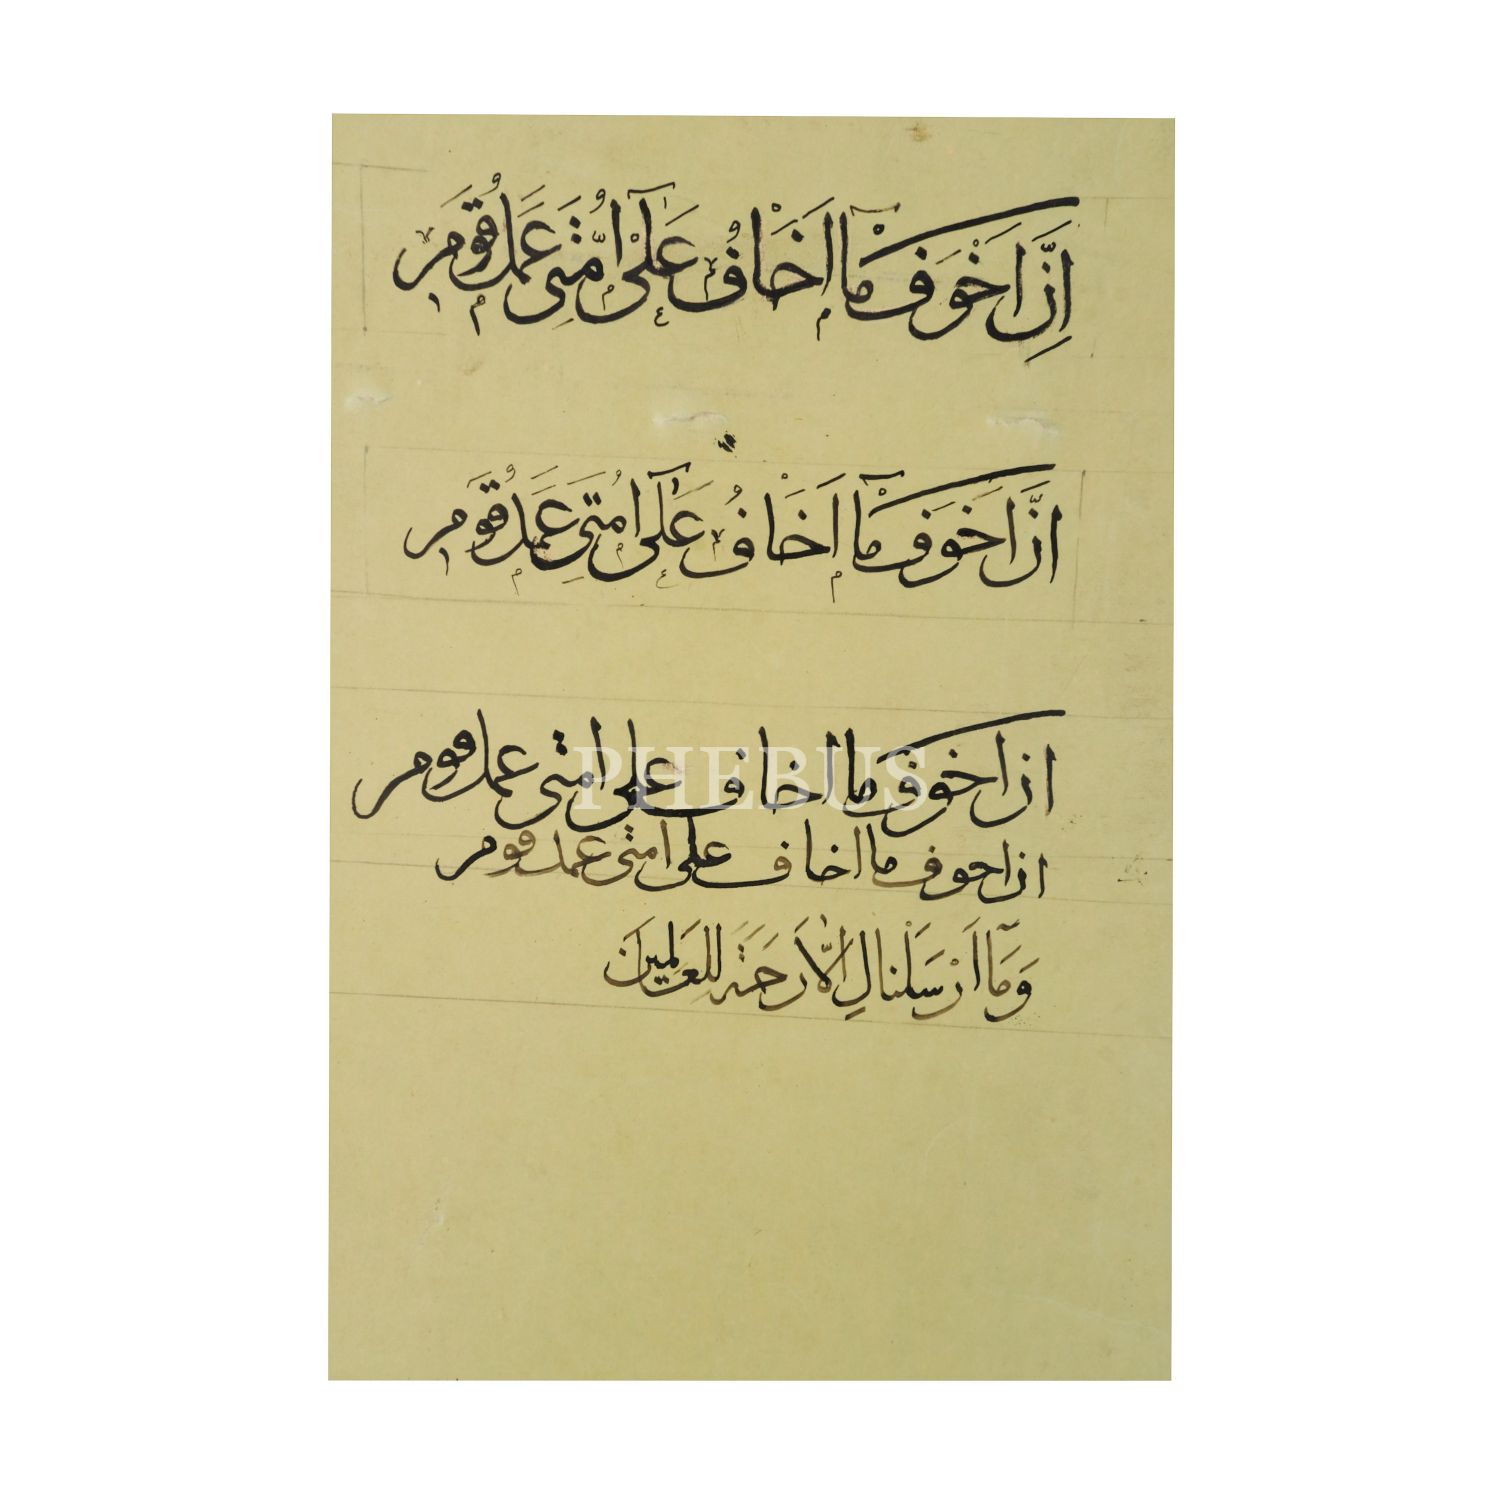 اِنَّ اَخْوَفَ مَٓا اَخَافُ عَلٰٓى اُمَّتِى عَمَلُ قَوْمِ
انَّ اَخَوَفَ مَٓا اَخَافُ عَلٰٓى اُمتِى عَمَلُ قَوْمِ
ان اخوف ما اخاف على امتى عمل قوم
PHEBUS
ان احوف ما اخاف على امتى عمل قوم
وَمَٓا اَرْسَلْنا اِلَّا رَحمَةً لِلعَالَمينَ